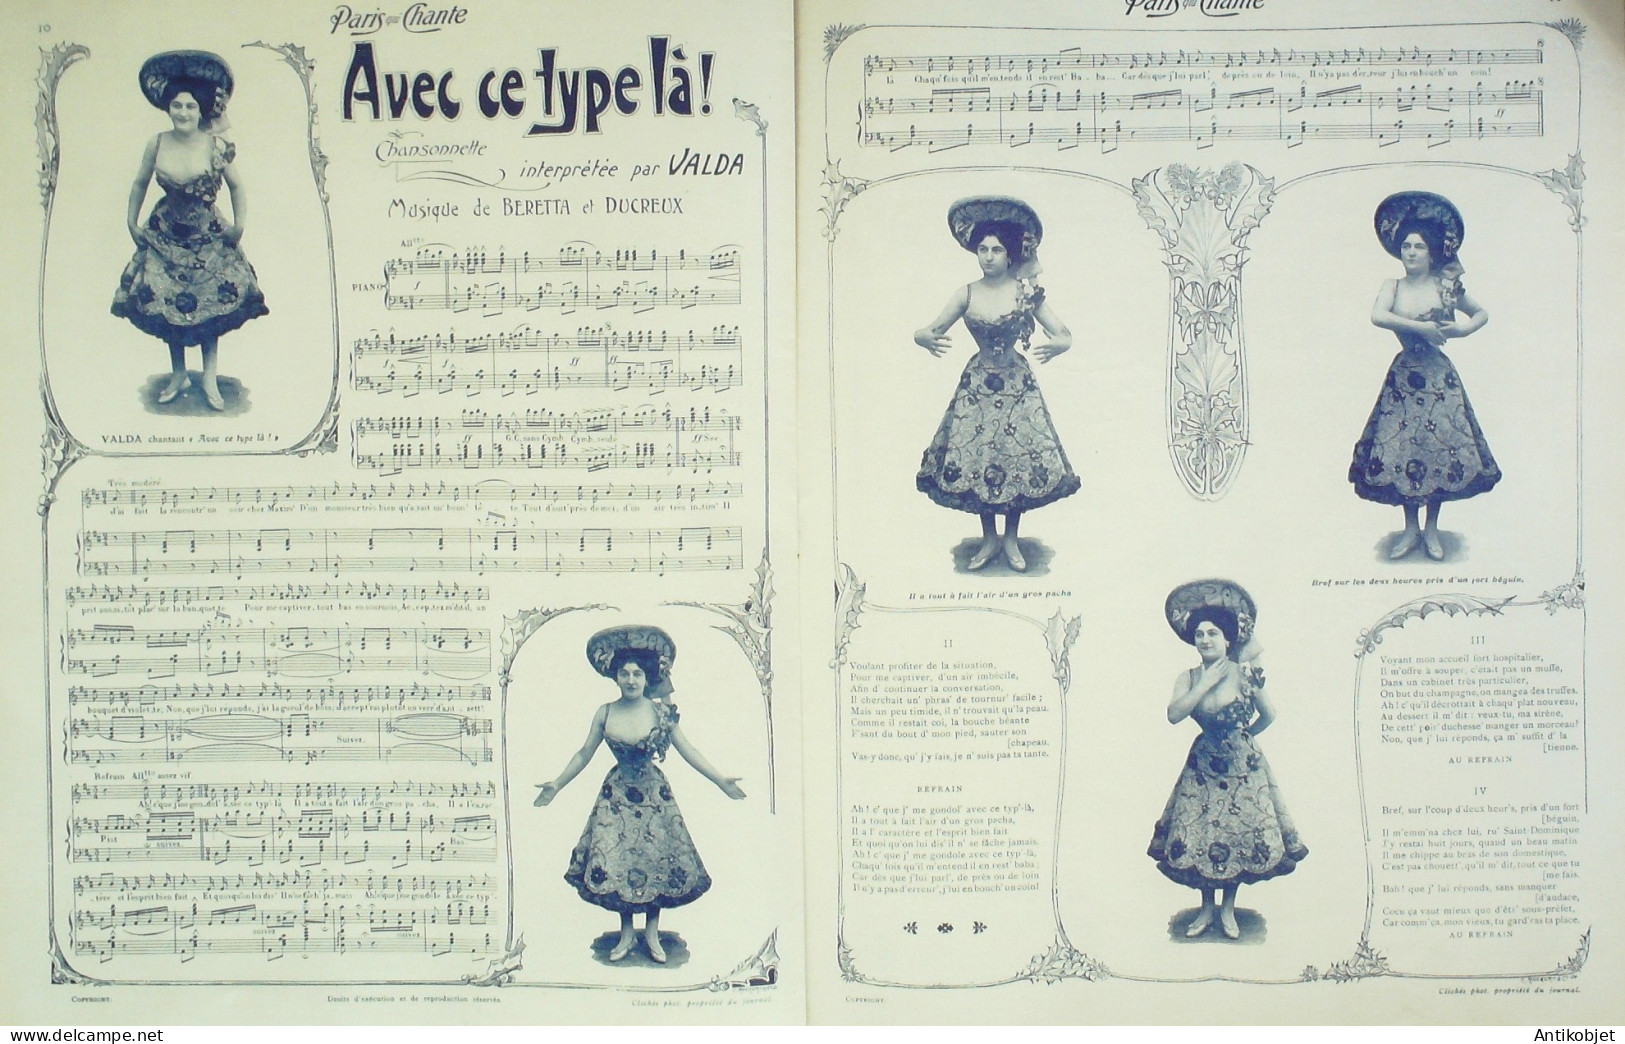 10
Paris qui Chante
Avec ce type là!
Chansonnette
interprétée par VALDA
Musique de BERETTA et DUCREUX
All.tto
PIANO
VALDA chantant « Avec ce type là ! »
G.C. sans Cymb. Cymb. seule
Très modéré
J'ai fait la rencontr' un soir chez Maxim' D'un monsieur très bien
Pour me captiver, tout bas en
bouquet d'violet.te, Non, que j'lui réponds, j'ai la gueul' de bois,
Suivez.
Refrain All.tto assez vif
Il a tout à fait l'air d'un gros pa.cha,
suivez
suivez
COPYRIGHT.
Droits d'exécution et de reproduction réservés.
Clichés phot. propriété du journal.
Paris qui Chante
là Chaqu' fois qu'il m'en.tends il en rest' Ba . ba... Car dès que j'lui parl', de près ou de loin, Il n'y a pas d'er.reur j'lui en bouch' un coin!
Il a tout à fait l'air d'un gros pacha
Bref sur les deux heures pris d'un fort béguin,
II
Voulant profiter de la situation,
Pour me captiver, d'un air imbécile,
Afin d' continuer la conversation,
Il cherchait un' phras' de tournur' facile ;
Mais un peu timide, il n' trouvait qu'la peau.
Comme il restait coi, la bouche béante
F'sant du bout d' mon pied, sauter son
[chapeau.
Vas-y donc, qu' j'y fais, je n' suis pas ta tante.
REFRAIN
Ah ! c' que j' me gondol' avec ce typ'-là,
Il a tout à fait l'air d'un gros pacha,
Il a l' caractère et l'esprit bien fait
Et quoi qu'on lui dis' il n' se fâche jamais.
Ah ! c' que j' me gondole avec ce typ'-là,
Chaqu' fois qu'il m'entend il en rest' baba ;
Car dès que j'lui parl', de près ou de loin
Il n'y a pas d'erreur, j'lui en bouch' un coin!
III
Voyant mon accueil fort hospitalier,
Il m'offre à souper, c'était pas un muffe,
Dans un cabinet très particulier,
On but du champagne, on mangea des truffes.
Ah ! c' qu'il décrottait à chaqu' plat nouveau,
Au dessert il m' dit : veux-tu, ma sirène,
De cett' poir' duchesse' manger un morceau?
Non, que j' lui réponds, ça m' suffit d' la
[tienne.
AU REFRAIN
IV
Bref, sur l'coup d'deux heur's, pris d'un fort
[béguin,
Il m'emm'na chez lui, ru' Saint-Dominique
J'y restai huit jours, quand un beau matin
Il me chippe au bras de son domestique,
C'est pas chouett', qu'il m' dit, tout ce que tu
[me fais.
Bah! que j' lui réponds, sans manquer
[d'audace,
Cocu ça vaut mieux que d'êtr' sous-préfet,
Car comm'ça, mon vieux, tu gard'ras ta place.
AU REFRAIN
COPYRIGHT.
Clichés phot. propriété du journal.
Antikobjet